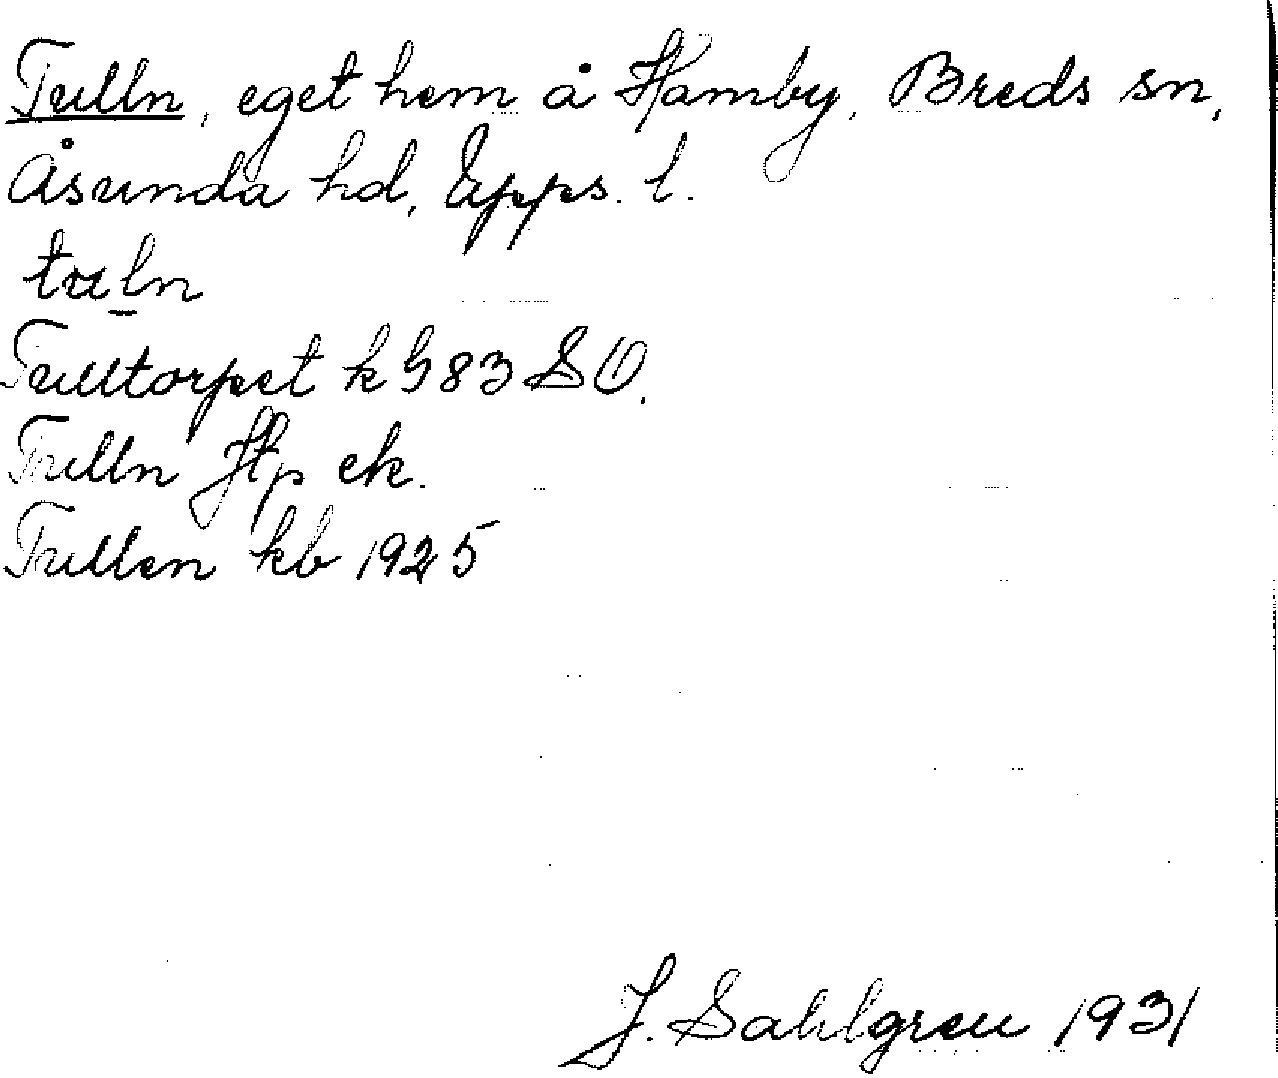 Tulln, eget hem å Hamby, Breds sn,
Åsunda hd, Upps. l.
tuln
Tulltorpet k G 83 SO.
Tulln Jfp ek.
Tullen kb 1925
J. Sahlgren 1931